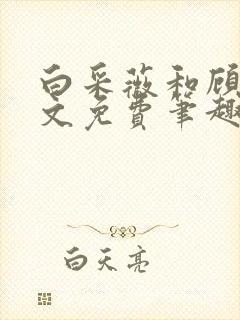 白采薇和顾
文免费笔趣
白天亮